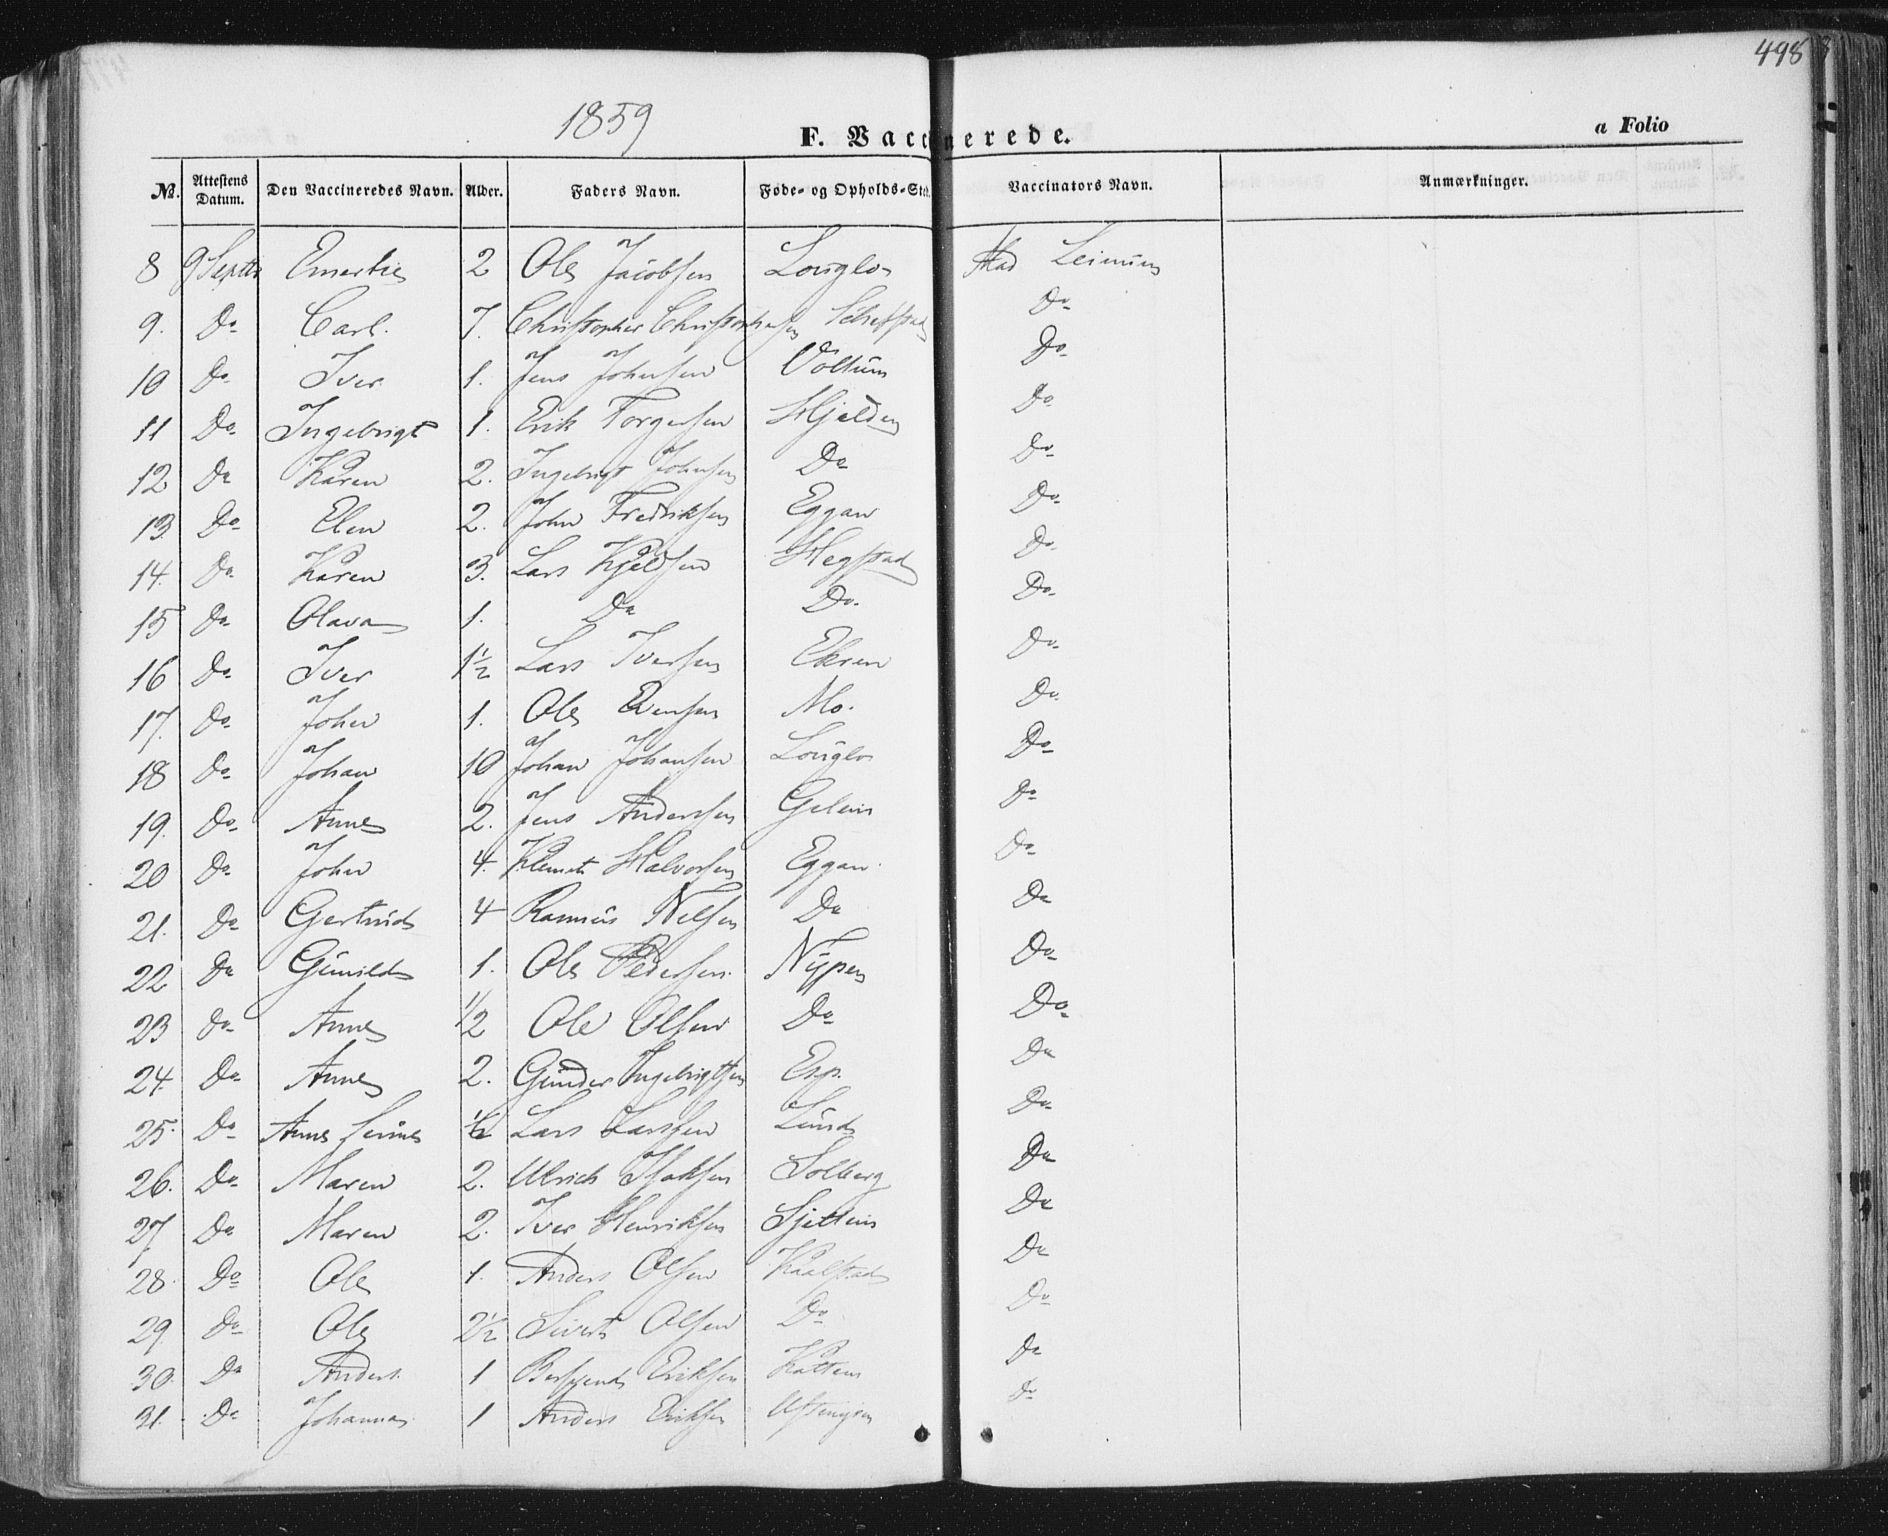 498
1859
F. Vaccinerede.
a Folio
No. Attestens Datum. Den Vaccineredes Navn. Alder. Faders Navn. Føde- og Opholds-Sted. Vaccinators Navn. Anmærkninger.
8 9 Septbr 2 Ole Jacobsen Louglo Mad Leinum
9. Do Carl. 7. Christopher Christophersen Do
10 Do Iver 1. Jens Johnsen Voltum Do
11 Do Ingebrigt 1. Erik Torgersen Hjelden Do
12 Do Karen 2. Ingebrigt Johnsen Do Do
13. Do Elen 2. John Fredriksen Eggan Do
14. Do Karen 3. Lars Kjeldsen Hegstad Do
15 Do Olava 1. Do Do Do
16 Do Iver 1½ Lars Iversen Ekren Do
17. Do John 1. Ole Evensen Mo. Do
18 Do Johan 10 Johan Johansen Louglo Do
19. Do Anne 2. Jens Anderssen Do
20 Do John 4. Klemet Halvorsen Eggan. Do
21. Do Gertrud 4 Rasmus Nilsen Do Do
22 Do Gunild 1. Ole Pedersen Nypen Do
23 Do Anne ½ Ole Olsen Do Do
24. Do Anne 2. Gunder Ingebrigtsen Esp. Do
25. Do Anne ½ Lars Larssen Lund Do
26. Do Maren 2. Ulrich Isaksen Solberg Do
27. Do Maren 2. Iver Henriksen Sjetten Do
28. Do Ole 1. Anders Olsen Kaalstad Do
29. Do Ole 2½ Sivert Olsen Do Do
30. Do Anders 1 Eriksen Kattem Do
31. Do Johanna 1 Anders Eriksen Do